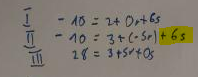 I -10 = 2 + 0r + 6s
II -10 = 3 + (-5r) + 6s
III 28 = 3 + 5r + 0s